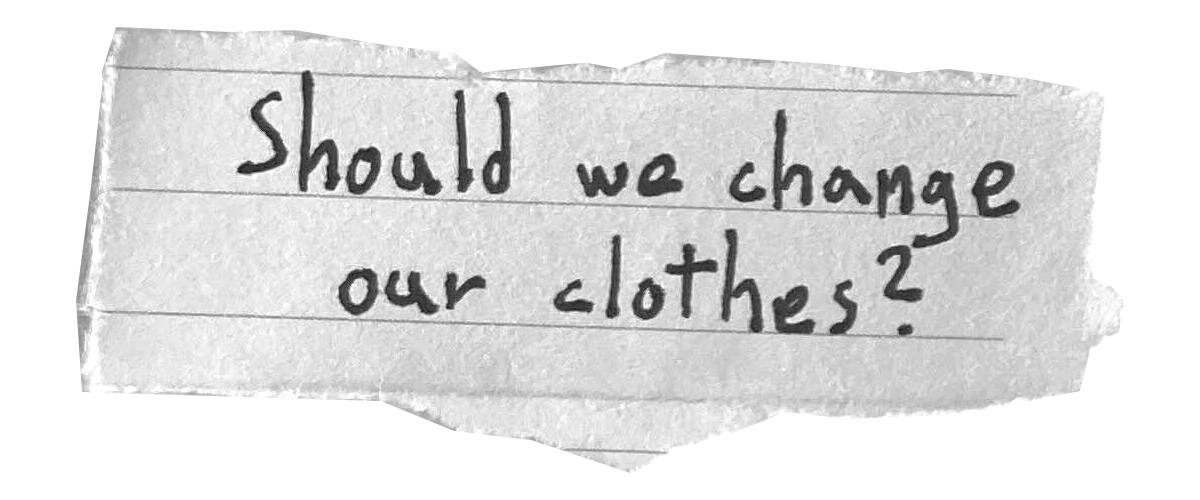 Should we change
our clothes?